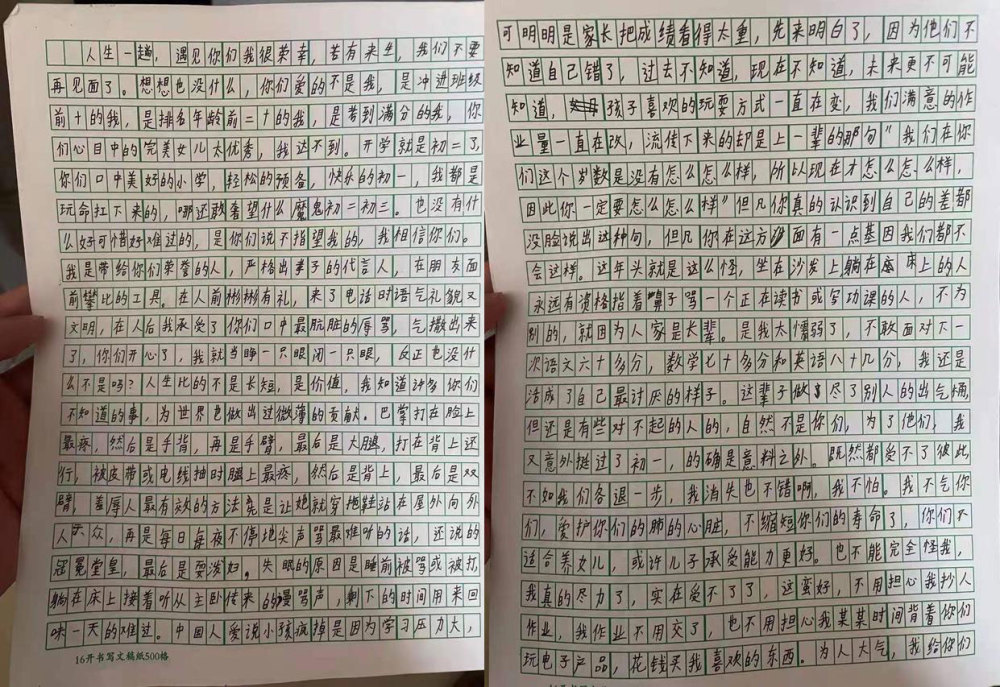 人生一趟，遇见你们我很荣幸，若有来生，我们不要
再见面了。想想也没什么，你们爱的不是我，是冲进班级
前十的我，是排名年龄前二十的我，是考到满分的我，你
们心目中的完美女儿太优秀，我达不到。开学就是初二了，
你们口中美好的小学，轻松的预备，快乐的初一，我都是
玩命扛下来的，哪还敢奢望什么魔鬼初二初三。也没有什
么好可惜好难过的，是你们说不指望我的，我相信你们。
我是带给你们荣誉的人，严格出孝子的代言人，在朋友面
前攀比的工具。在人前彬彬有礼，来了电话时语气礼貌又
文明，在人后我承受了你们口中最肮脏的辱骂，气撒出来
了，你们开心了，我就当睁一只眼闭一只眼，反正也没什
么不是吗？人生比的不是长短，是价值，我知道许多你们
不知道的事，为世界也做出过微薄的贡献。巴掌打在脸上
最疼，然后是手背，再是手臂，最后是大腿，打在背上还
行，被皮带或电线抽时腿上最疼，然后是背上，最后是双
臂，羞辱人最有效的方法竟是让她就穿拖鞋站在屋外向外
人示众，再是每日每夜不停地尖声骂最难听的话，还说的
冠冕堂皇，最后是耍泼妇。失眠的原因是睡前被骂或被打，
躺在床上接着听从主卧传来的谩骂声，剩下的时间用来回
味一天的难过。中国人爱说小孩疯掉是因为学习压力大，
16开书写文稿纸500格
可明明是家长把成绩看得太重，先来明白了，因为他们不
知道自己错了，过去不知道，现在不知道，未来更不可能
知道，孩子喜欢的玩耍方式一直在变，我们满意的作
业量一直在改，流传下来的却是上一辈的那句“我们在你
们这个岁数是没有怎么怎么样，所以现在才怎么怎么样，
因此你一定要怎么怎么样”但凡你真的认识到自己的差都
没脸说出这种句，但凡你在这方面有一点基因我们都不
会这样。这年头就是这么怪，坐在沙发上躺在床上的人
永远有资格指着鼻子骂一个正在读书或写功课的人，不为
别的，就因为人家是长辈。是我太懦弱了，不敢面对下一
次语文六十多分，数学七十多分和英语八十几分，我还是
活成了自己最讨厌的样子。这辈子做尽了别人的出气桶，
但还是有些对不起的人的，自然不是你们，为了他们，我
又意外挺过了初一，的确是意料之外。既然都受不了彼此，
不如我们各退一步，我消失也不错啊，我不怕。我不气你
们，爱护你们的肺的心脏，不缩短你们的寿命了，你们不
适合养女儿，或许儿子承受能力更好。也不能完全怪我，
我真的尽力了，实在受不了了，这蛮好，不用担心我抄人
作业，我作业不用交了，也不用担心我某某时间背着你们
玩电子产品，花钱买我喜欢的东西。为人大气，我给你们